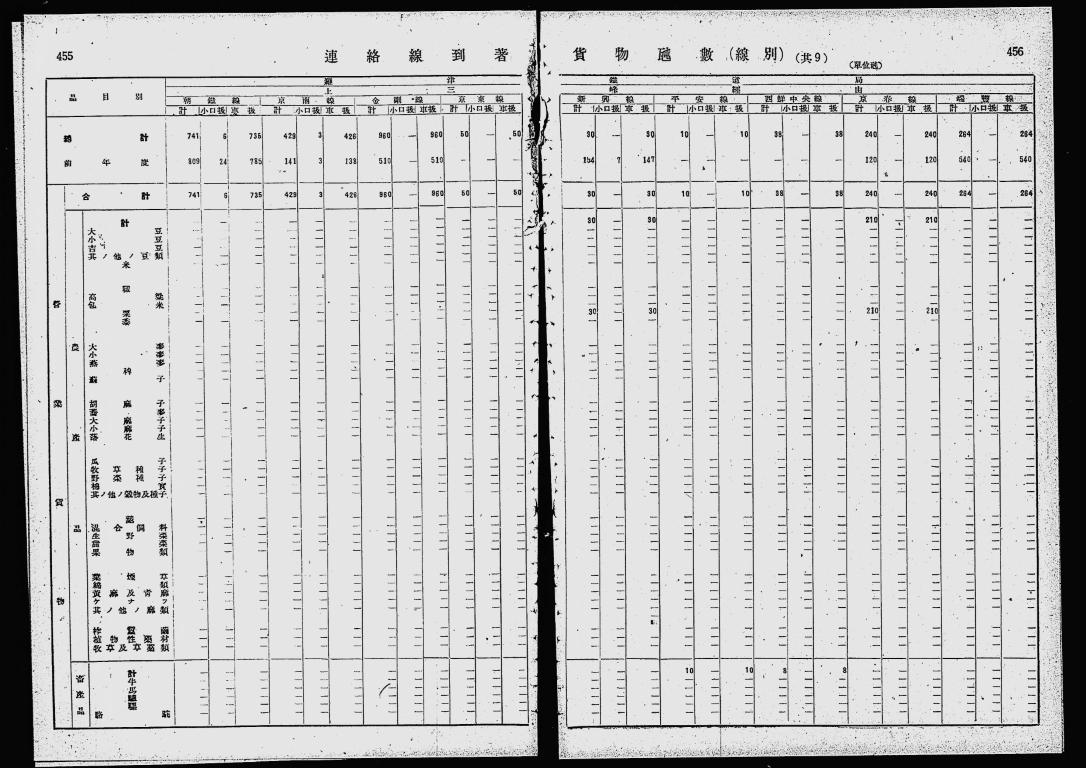 455 連絡線到著 貨物瓲數(線別) (共9) 456
(單位瓲)
羅津 鐵道局
上三 峰經由
品目別 朝鐵線 京南線 金剛線 京東線 新興線 平安線 西鮮中央線 京春線 端豐線
計 小口扱 車扱 計 小口扱 車扱 計 小口扱 車扱 計 小口扱 車扱 計 小口扱 車扱 計 小口扱 車扱 計 小口扱 車扱 計 小口扱 車扱 計 小口扱 車扱
總計 741 6 735 429 3 426 960 — 960 50 — 50 30 — 30 10 — 10 38 — 38 240 — 240 264 — 264
前年度 809 24 785 141 3 138 510 — 510 — — — 154 7 147 — — — — — — 120 — 120 540 — 540
合計 741 6 735 429 3 426 960 — 960 50 — 50 30 — 30 10 — 10 38 — 38 240 — 240 264 — 264
營業貨物
農產品
計 30 — 30 210 — 210
大豆
小豆
吉豆
其ノ他ノ豆類
米
高粱
包米
粟 30 — 30 210 — 210
黍
大麥
小麥
燕麥
蘇子
胡麻子
蕎麥
大麻子
小麻子
落花生
瓜子
牧草種子
野菜種子
棉實
其ノ他ノ穀物及種子
混合飼料
生野菜
甜菜
果物類
葉煙草
綿類
黃麻及靑麻
ケナフ
其ノ他ノ麻類
柞蠶繭
植物性藥材
牧草及草藁類
畜產品
計 10 — 10 8 — 8
牛
馬
驢
騾
駱駝